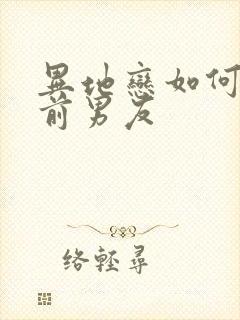 異地戀如何
前男友
络輕尋